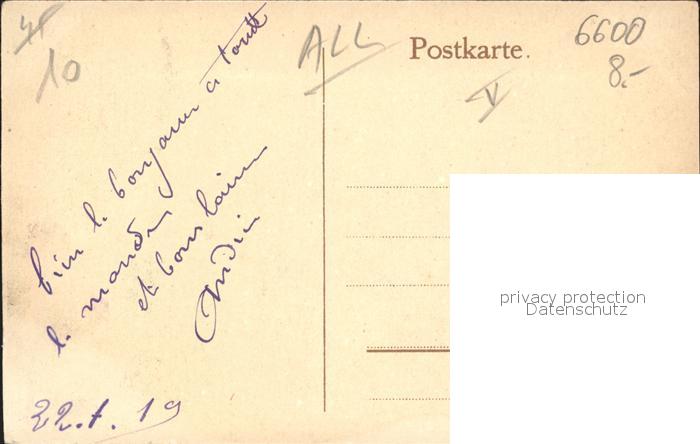 10
ALL
Postkarte.
6600
8.-
bien le bonjour à tout
le monde
et bons
22.1.19
privacy protection
Datenschutz